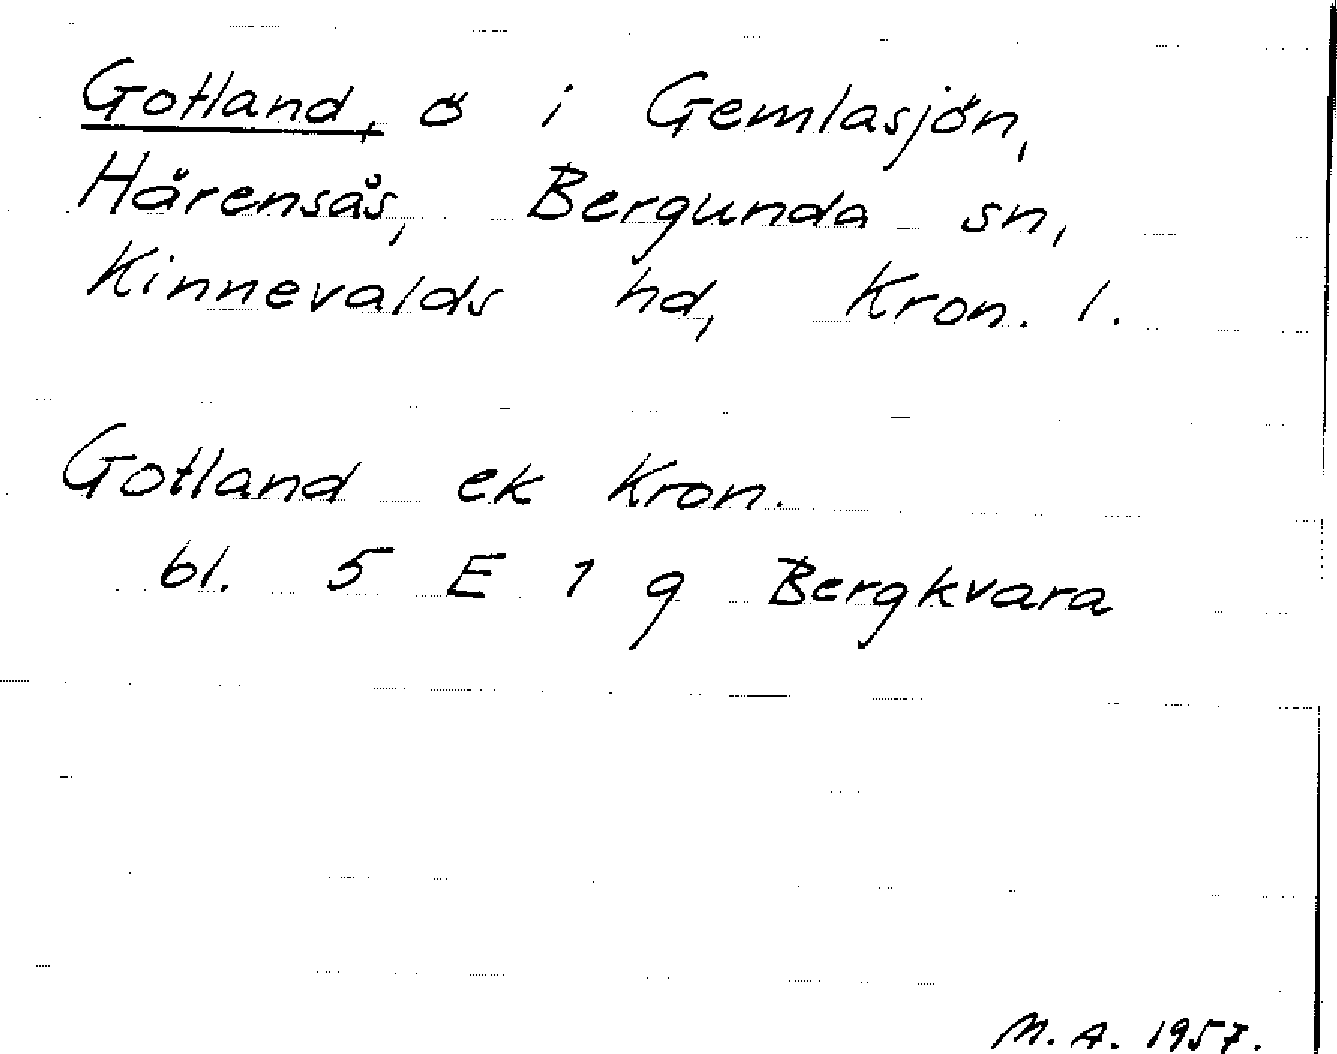 Gotland, ö i Gemlasjön,
Hårensås, Bergunda sn,
Kinnevalds hd, Kron. l.
Gotland ek Kron.
bl. 5 E 1 g Bergkvara
M. A. 1957.